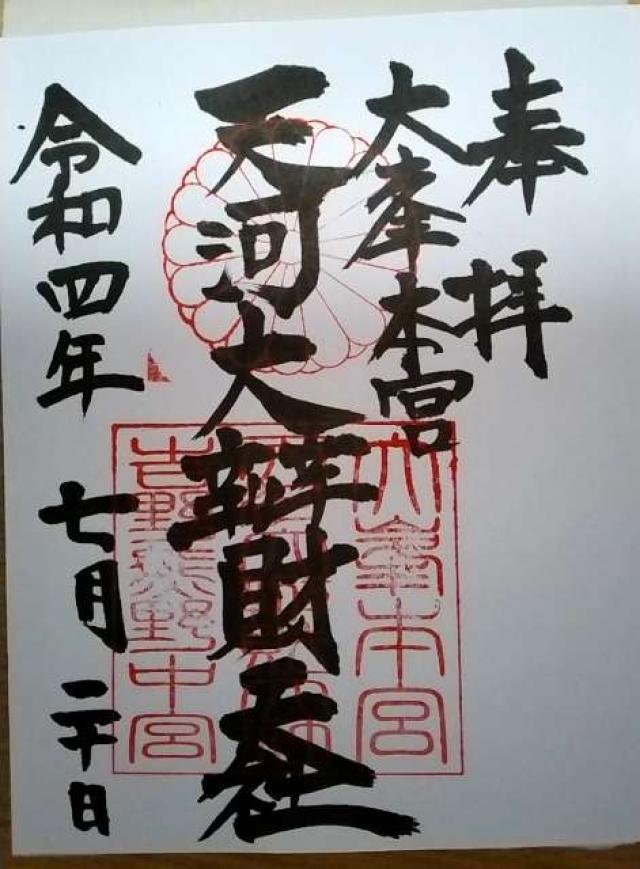 奉拝
大峯本宮
天河大辨財天社
令和四年 七月 二十日
大峯本宮
吉野熊野中宮